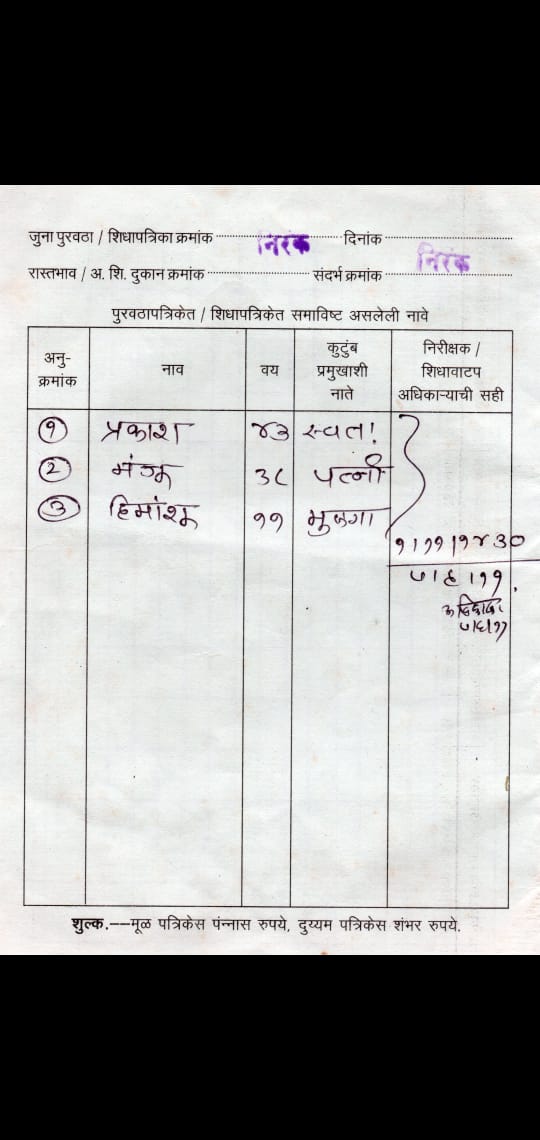 जुना पुरवठा / शिधापत्रिका क्रमांक निरंक दिनांक
रास्तभाव / अ. शि. दुकान क्रमांक संदर्भ क्रमांक निरंक
पुरवठापत्रिकेत / शिधापत्रिकेत समाविष्ट असलेली नावे
अनु-क्रमांक नाव वय कुटुंब प्रमुखाशी नाते निरीक्षक / शिधावाटप अधिकाऱ्याची सही
१ प्रकाश ४३ स्वत!
२ मंजू ३८ पत्नी
३ हिमांशू ११ मुलगा
१।११।१४३०
७।६।११
शुल्क.--मूळ पत्रिकेस पंन्नास रुपये, दुय्यम पत्रिकेस शंभर रुपये.